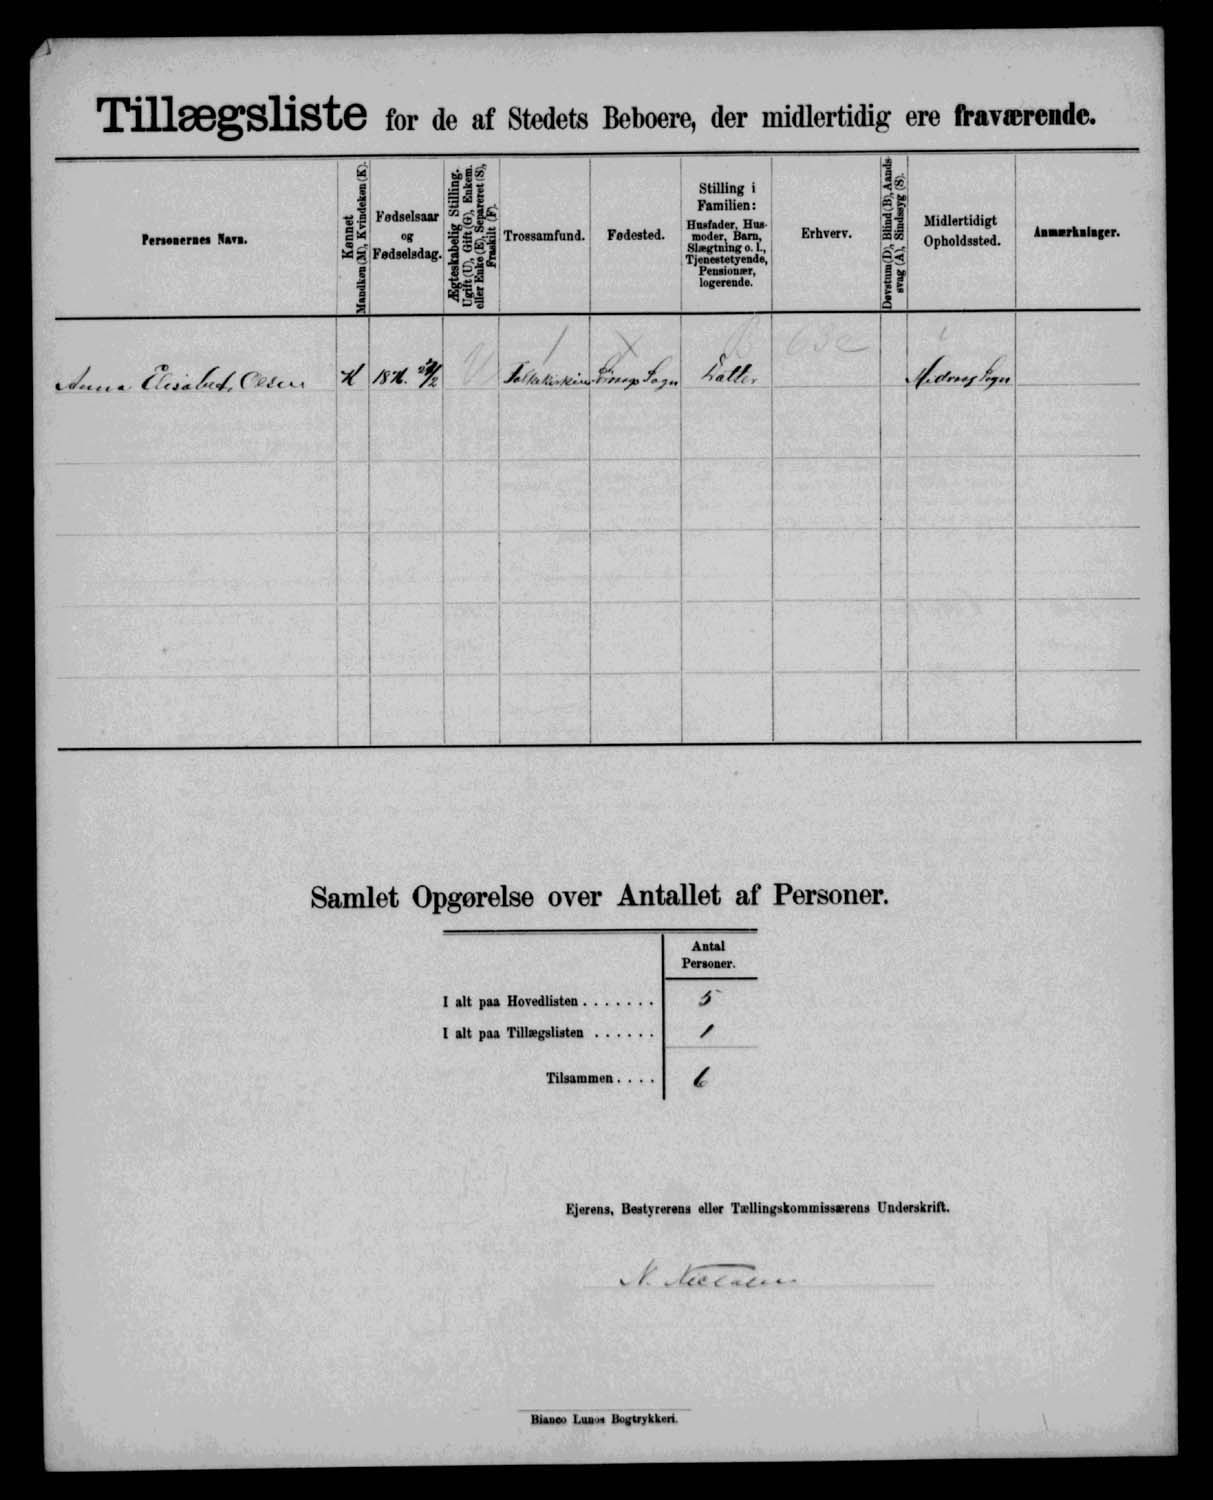 Tillægsliste for de af Stedets Beboere, der midlertidig ere fraværende.
Personernes Navn.
Kønnet
Mandkøn (M), Kvindekøn (K).
Fødselsaar
og
Fødselsdag.
Ægteskabelig Stilling.
Ugift (U), Gift (G), Enkem.
eller Enke (E), Separeret (S),
Fraskilt (F).
Trossamfund.
Fødested.
Stilling i
Familien:
Husfader, Hus-
moder, Barn,
Slægtning o. l.,
Tjenestetyende,
Pensionær,
logerende.
Erhverv.
Døvstum (D), Blind (B), Aands-
svag (A), Sindssyg (S).
Midlertidigt
Opholdssted.
Anmærkninger.
Anna Elisabet, Olsen K U Folkekirken Sogn Datter Sogn
Samlet Opgørelse over Antallet af Personer.
Antal
Personer.
I alt paa Hovedlisten . . . . . . . 5
I alt paa Tillægslisten . . . . . . 1
Tilsammen . . . . 6
Ejerens, Bestyrerens eller Tællingskommissærens Underskrift.
N.
Bianco Lunos Bogtrykkeri.